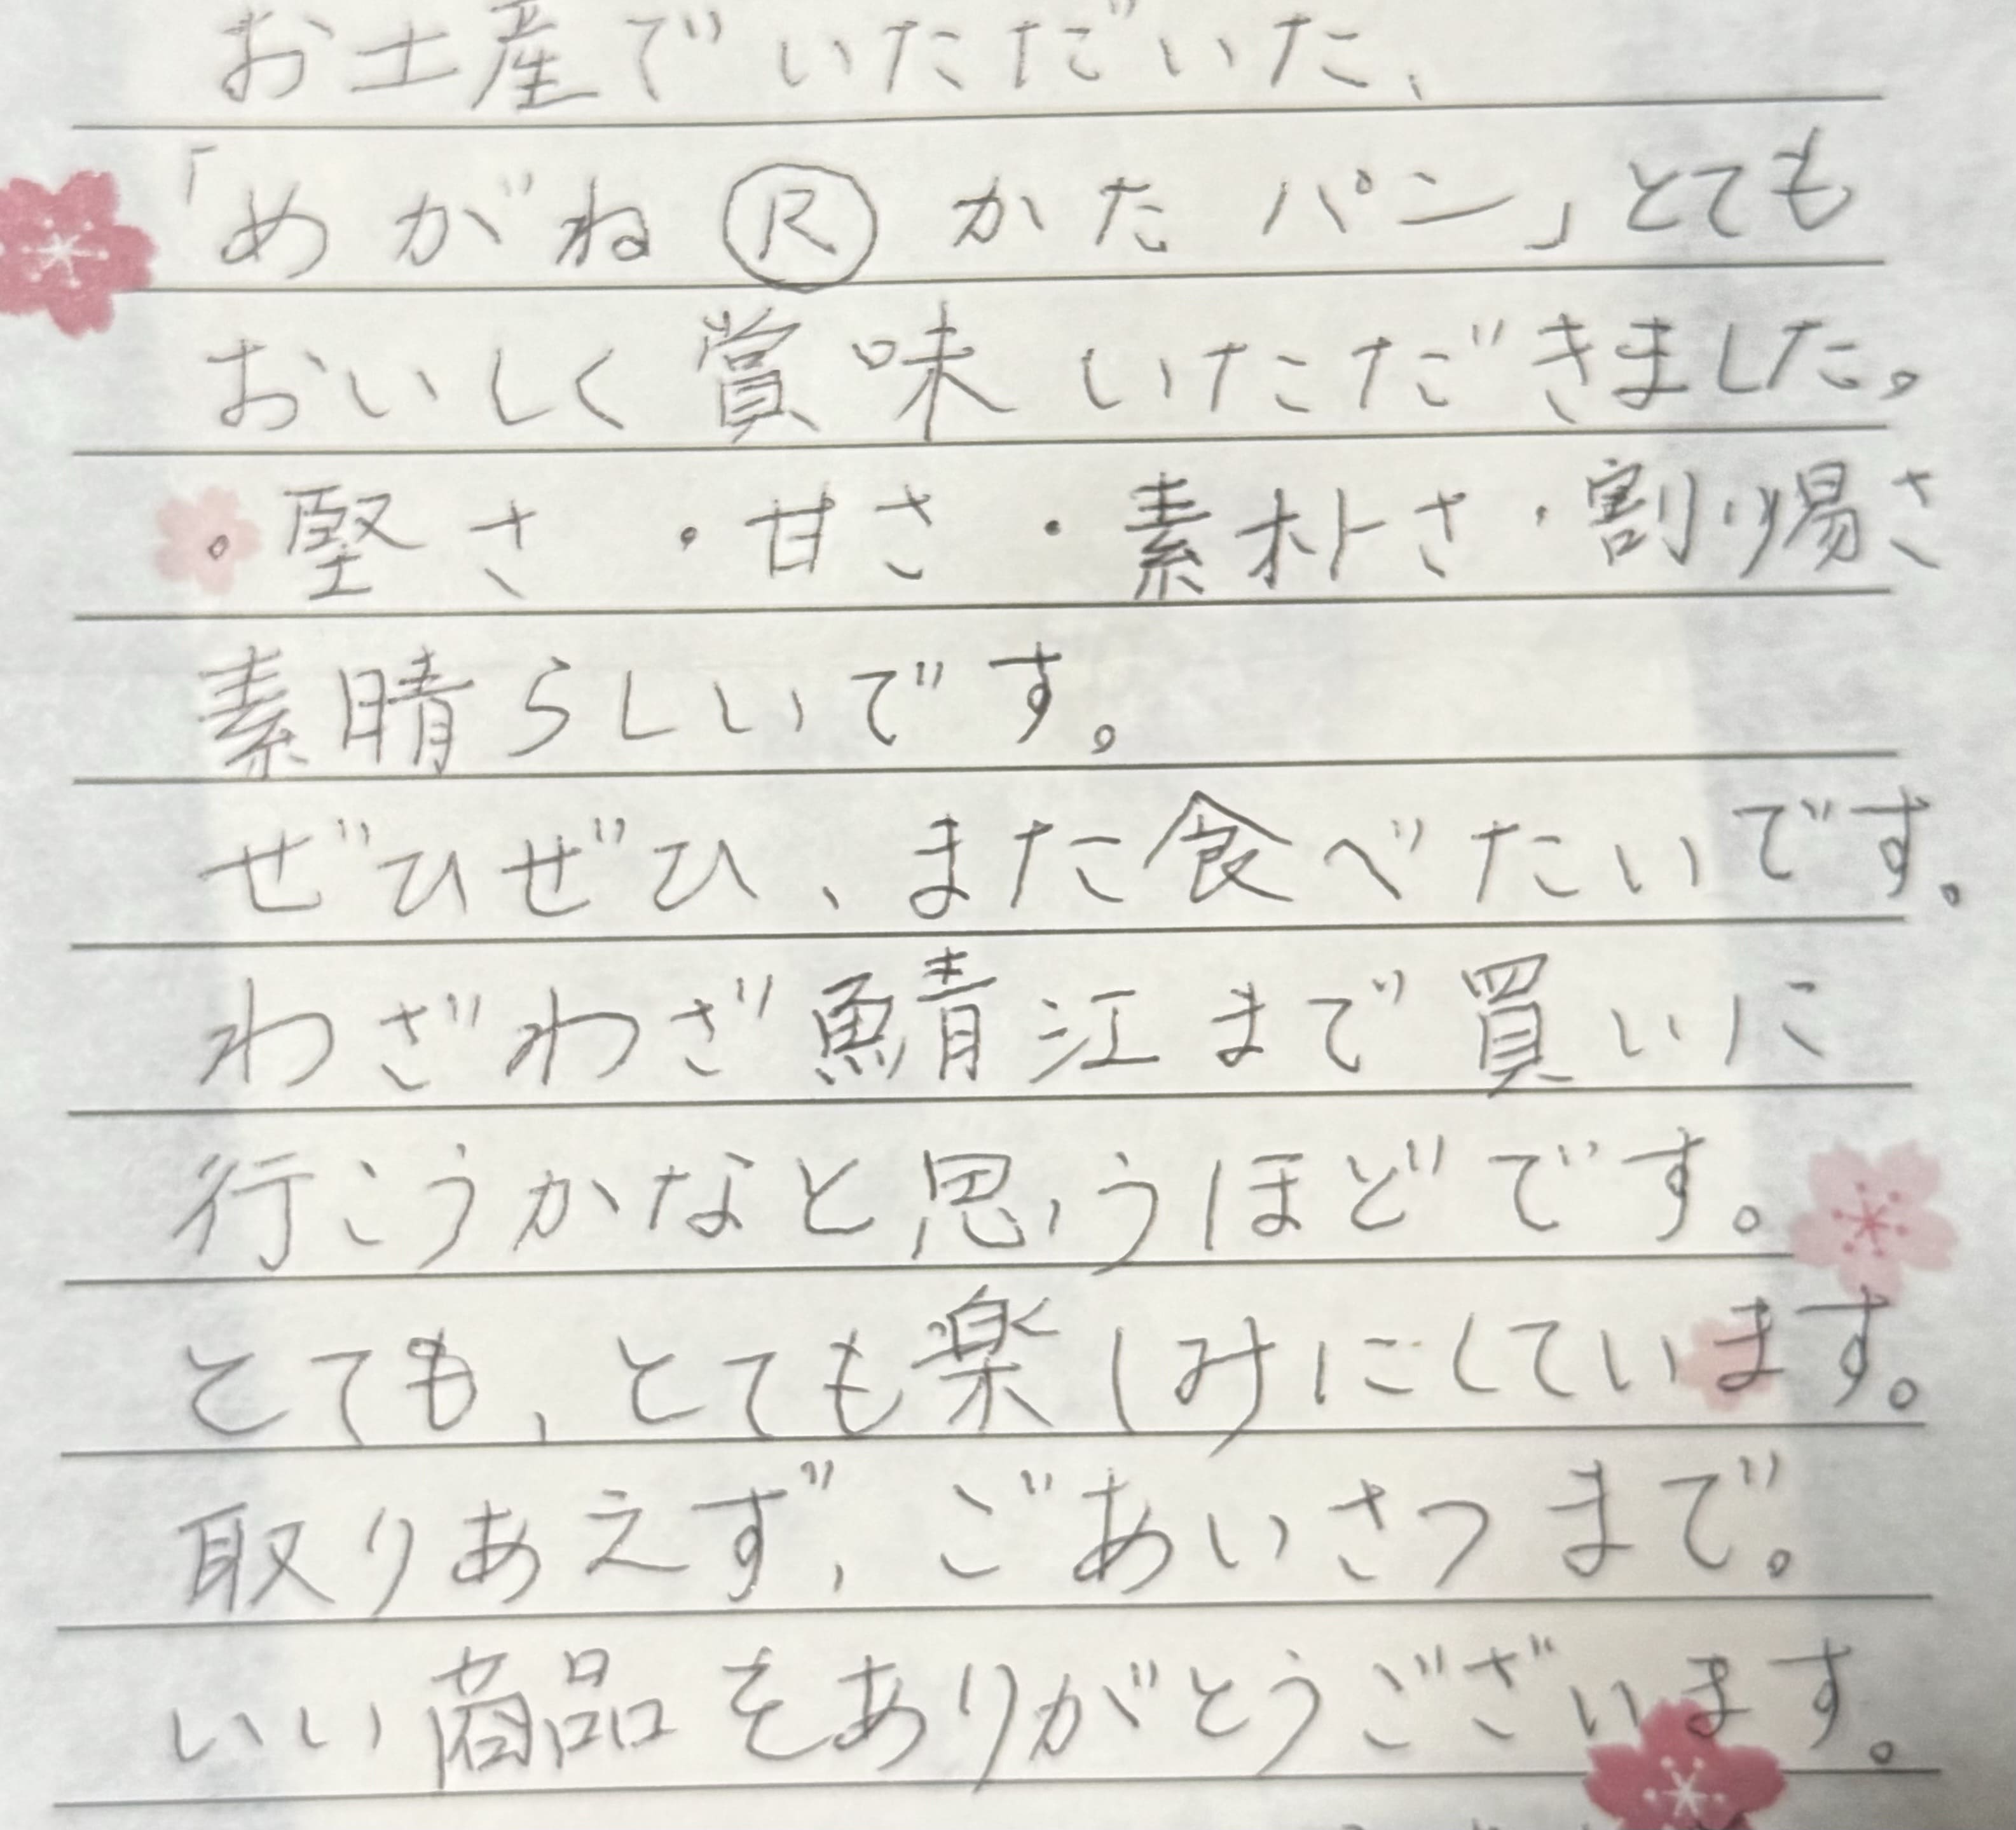 お土産でいただいた、
「めがねⓇかたパン」とても
おいしく賞味いただきました。
・堅さ ・甘さ ・素朴さ・割り易さ
素晴らしいです。
ぜひぜひ、また食べたいです。
わざわざ鯖江まで買いに
行こうかなと思うほどです。
とても、とても楽しみにしています。
取りあえず、ごあいさつまで。
いい商品をありがとうございます。